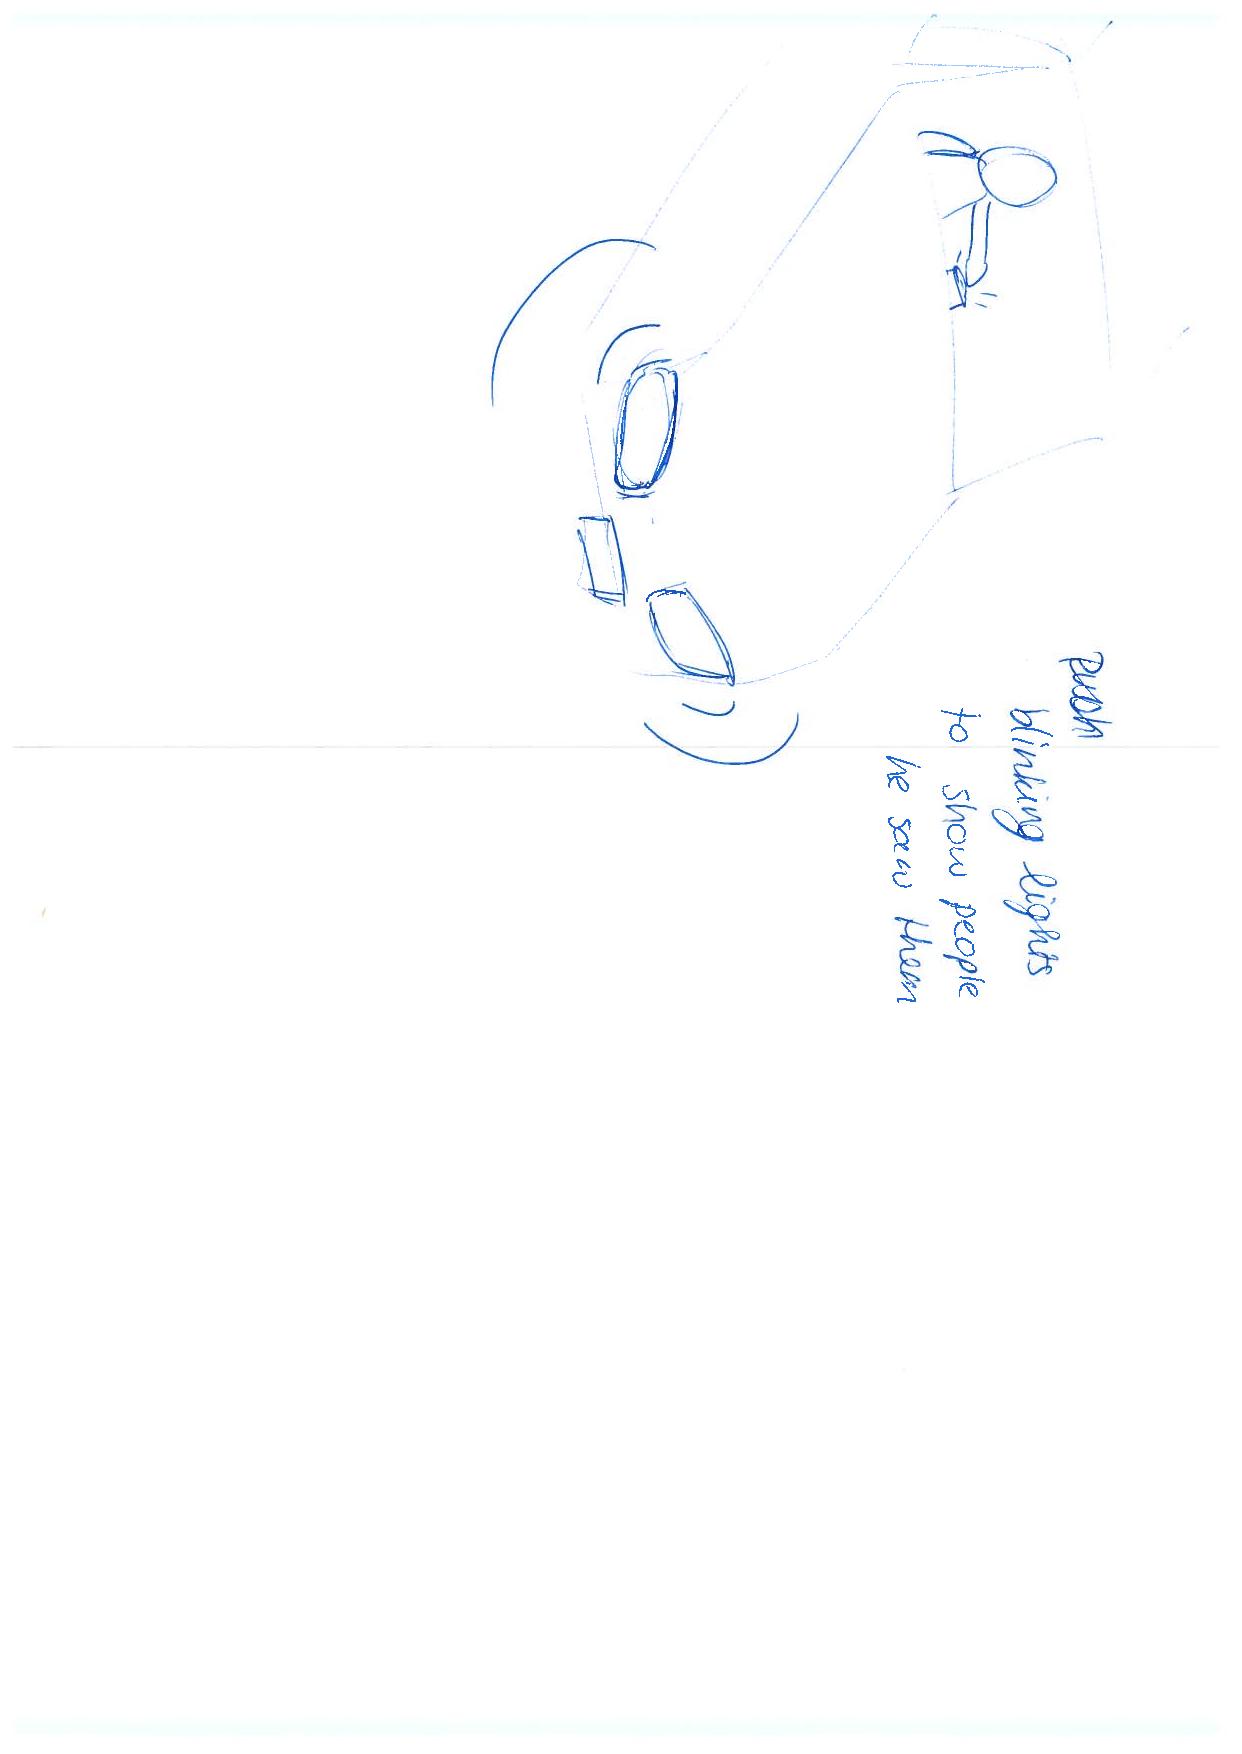 push
blinking lights
to show people
he saw them